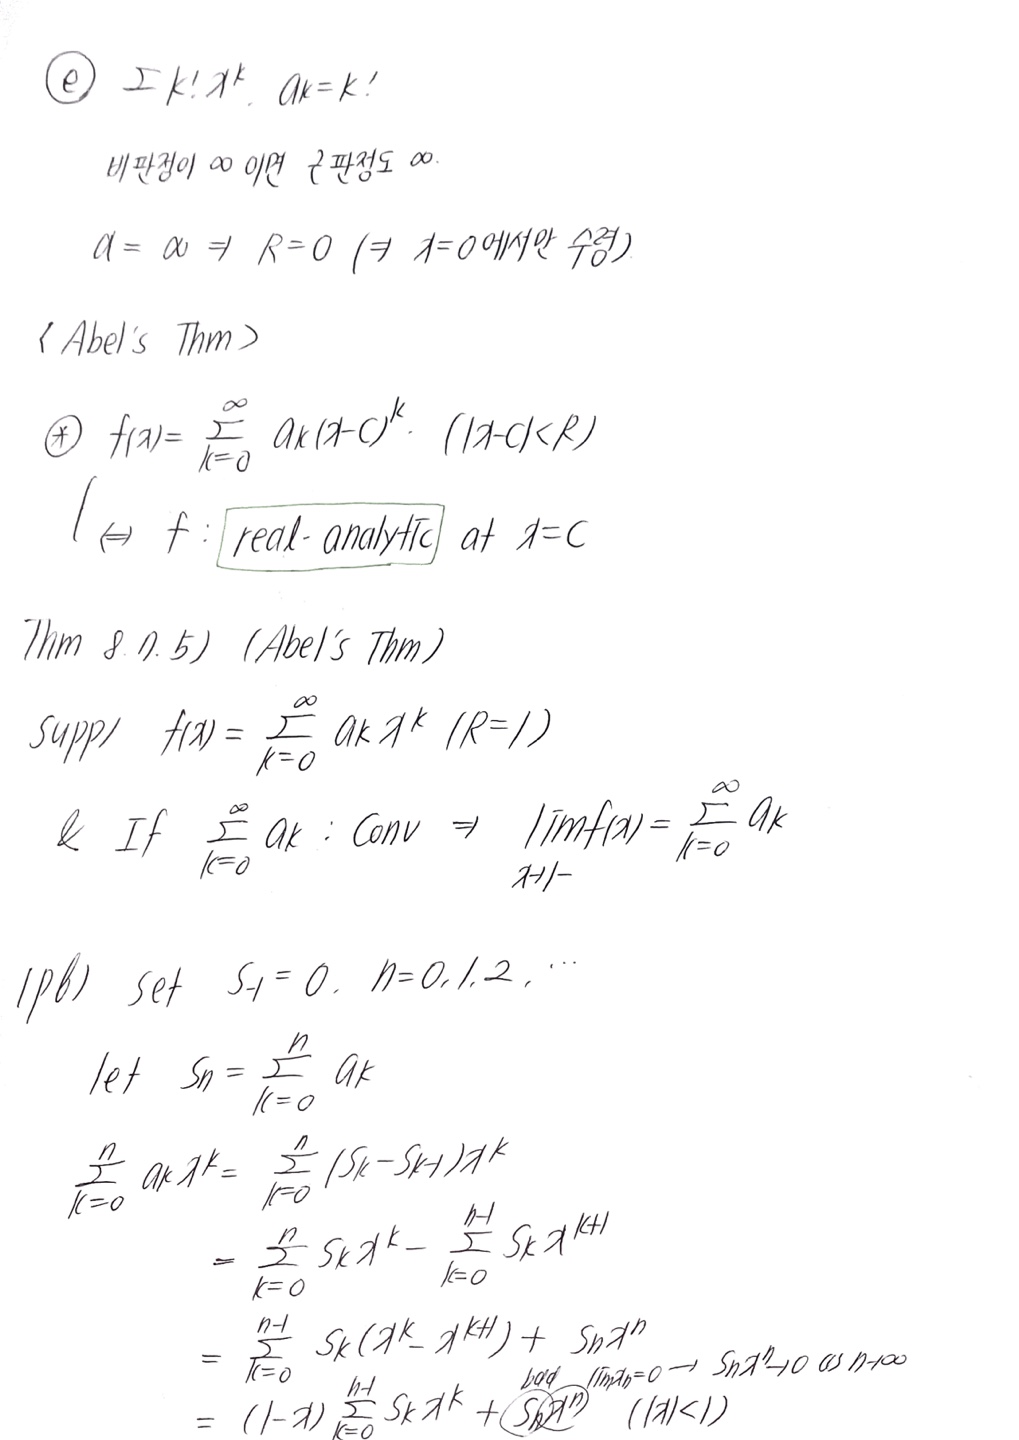 ⓔ Σ k! x^k. ak = k!
비판정이 ∞ 이면 근판정도 ∞.
α = ∞ ⇒ R = 0 (⇒ x=0에서만 수렴)
<Abel's Thm>
⊛ f(x) = Σ_{k=0}^{∞} ak(x-c)^k. (|x-c|<R)
⇔ f : real-analytic at x=c
Thm 8.7.5) (Abel's Thm)
supp/ f(x) = Σ_{k=0}^{∞} ak x^k (R=1)
& If Σ_{k=0}^{∞} ak : conv ⇒ lim_{x→1-} f(x) = Σ_{k=0}^{∞} ak
(pf) set S_{-1} = 0. n=0,1,2, ⋯
let Sn = Σ_{k=0}^{n} ak
Σ_{k=0}^{n} ak x^k = Σ_{k=0}^{n} (Sk - S_{k-1}) x^k
= Σ_{k=0}^{n} Sk x^k - Σ_{k=0}^{n-1} Sk x^{k+1}
= Σ_{k=0}^{n-1} Sk (x^k - x^{k+1}) + Sn x^n
bdd lim xn=0 → Sn x^n → 0 as n→∞
= (1-x) Σ_{k=0}^{n-1} Sk x^k + Sn x^n (|x|<1)